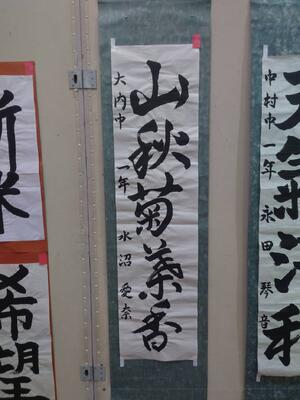 天氣清和
中村中一年 永田琴音
山秋菊葉香
大内中 一年 水沼愛奈
新米
希望